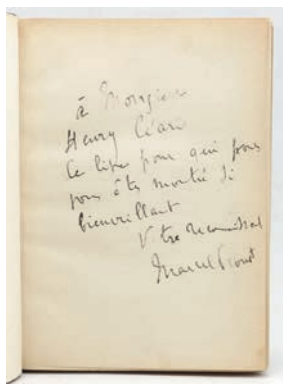 à Monsieur
Henry Céard
Ce livre pour qui
vous êtes montré si
bienveillant
Votre reconnaissant
Marcel Proust